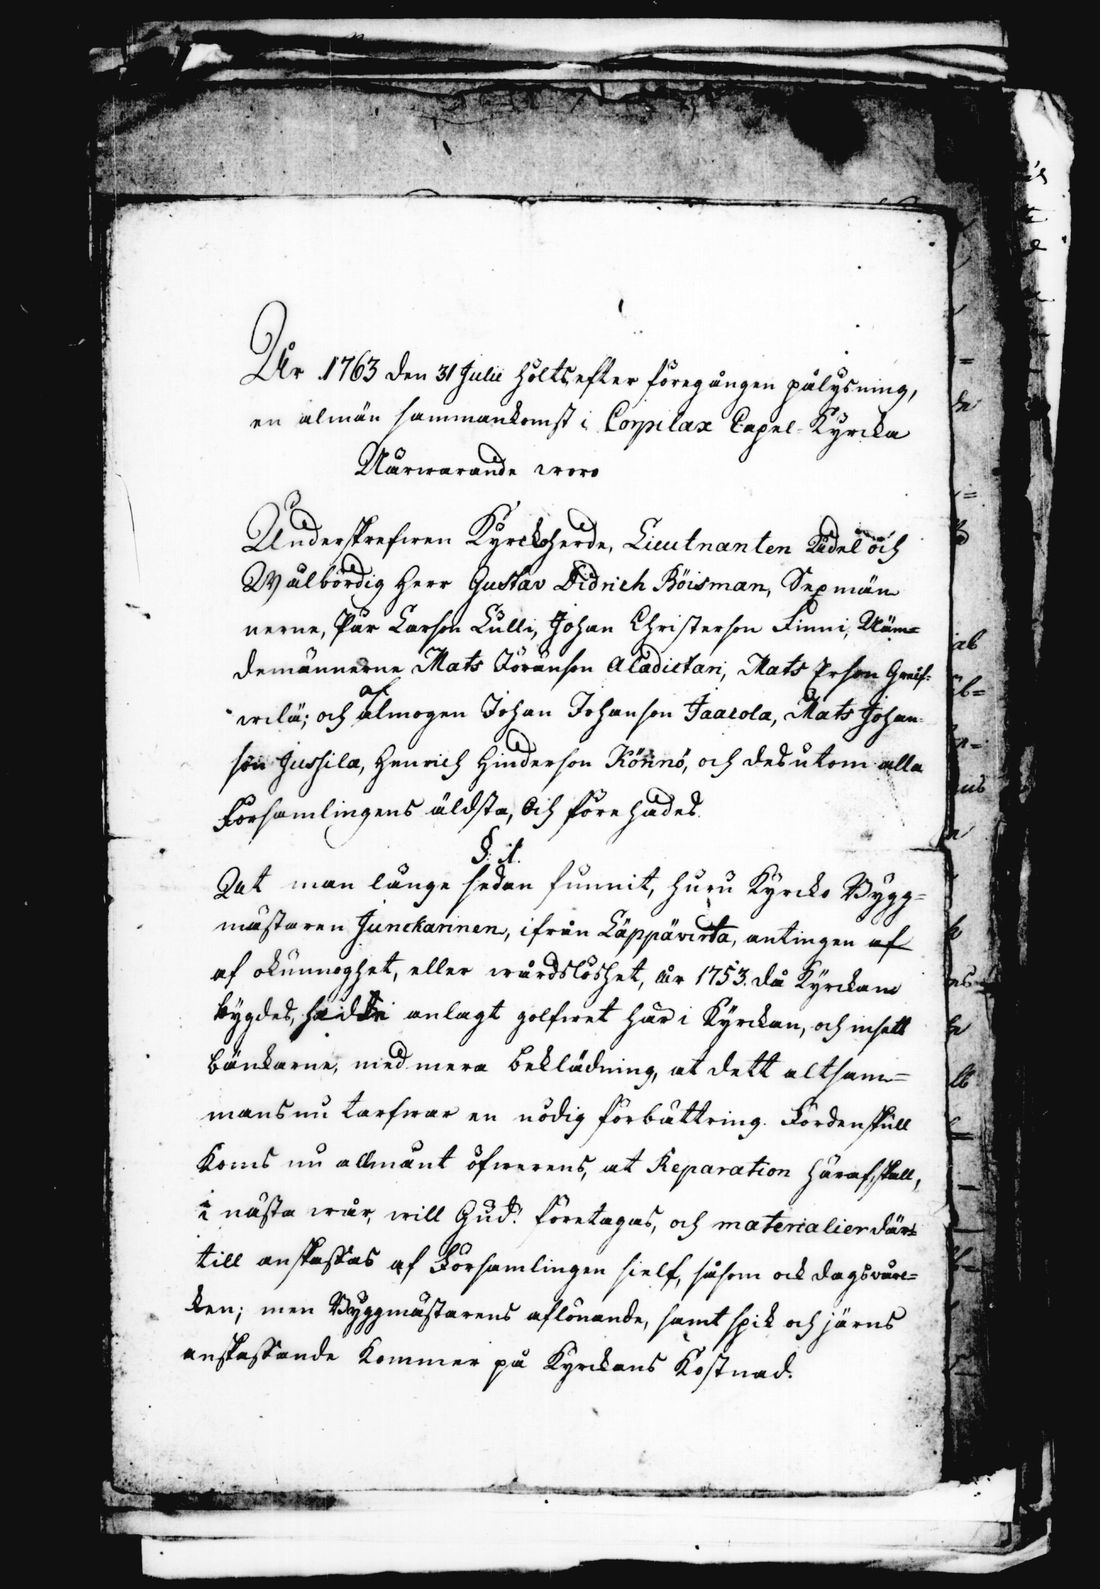 År 1763 den 31 Julii höltz efter föregången pålysning,
en almän sammankomst i Corpilax Capel-Kyrcka
Närwarande woro
Underskrefwen Kyrckoherde, Lieutnanten Ädel och
Wälbördig Herr Gustav Didrich Böisman, Sexmän
nerne, Pär Larson Lulli, Johan Christerson Finni, Näm=
demännerne Mats Göranson Aladictari, Mats Erson
wilä; och af almogen Johan Johanson Jaacola, Mats Johan
son Jussila, Henrich Hinderson Könnö, och desutom alla
Församlingens äldsta, Och förehades
§. 1.
Dat man länge sedan funnit, huru Kyrcko Bygg=
mästaren Junckarinen, ifrån Läppävirta, antingen af
af okunnoghet, eller wårdslöshet, År 1753. då Kyrckan
bygdes, anlagt golfwet här i Kyrckan, och insatt
bänckarne, med mera beklädning, at dett altsam=
mans nu tarfwar en nödig förbättring. Fördenskull
Koms nu allmänt öfwerens, at Reparation häraf skall,
i nästa wår, will Gud: företagas, och materialier där=
till anskaffas af Församlingen sielf, såsom ock dagswär=
cken; men Byggmästarens aflönande, samt spik och järns
anskaffande kommer på Kyrckans Kostnad.